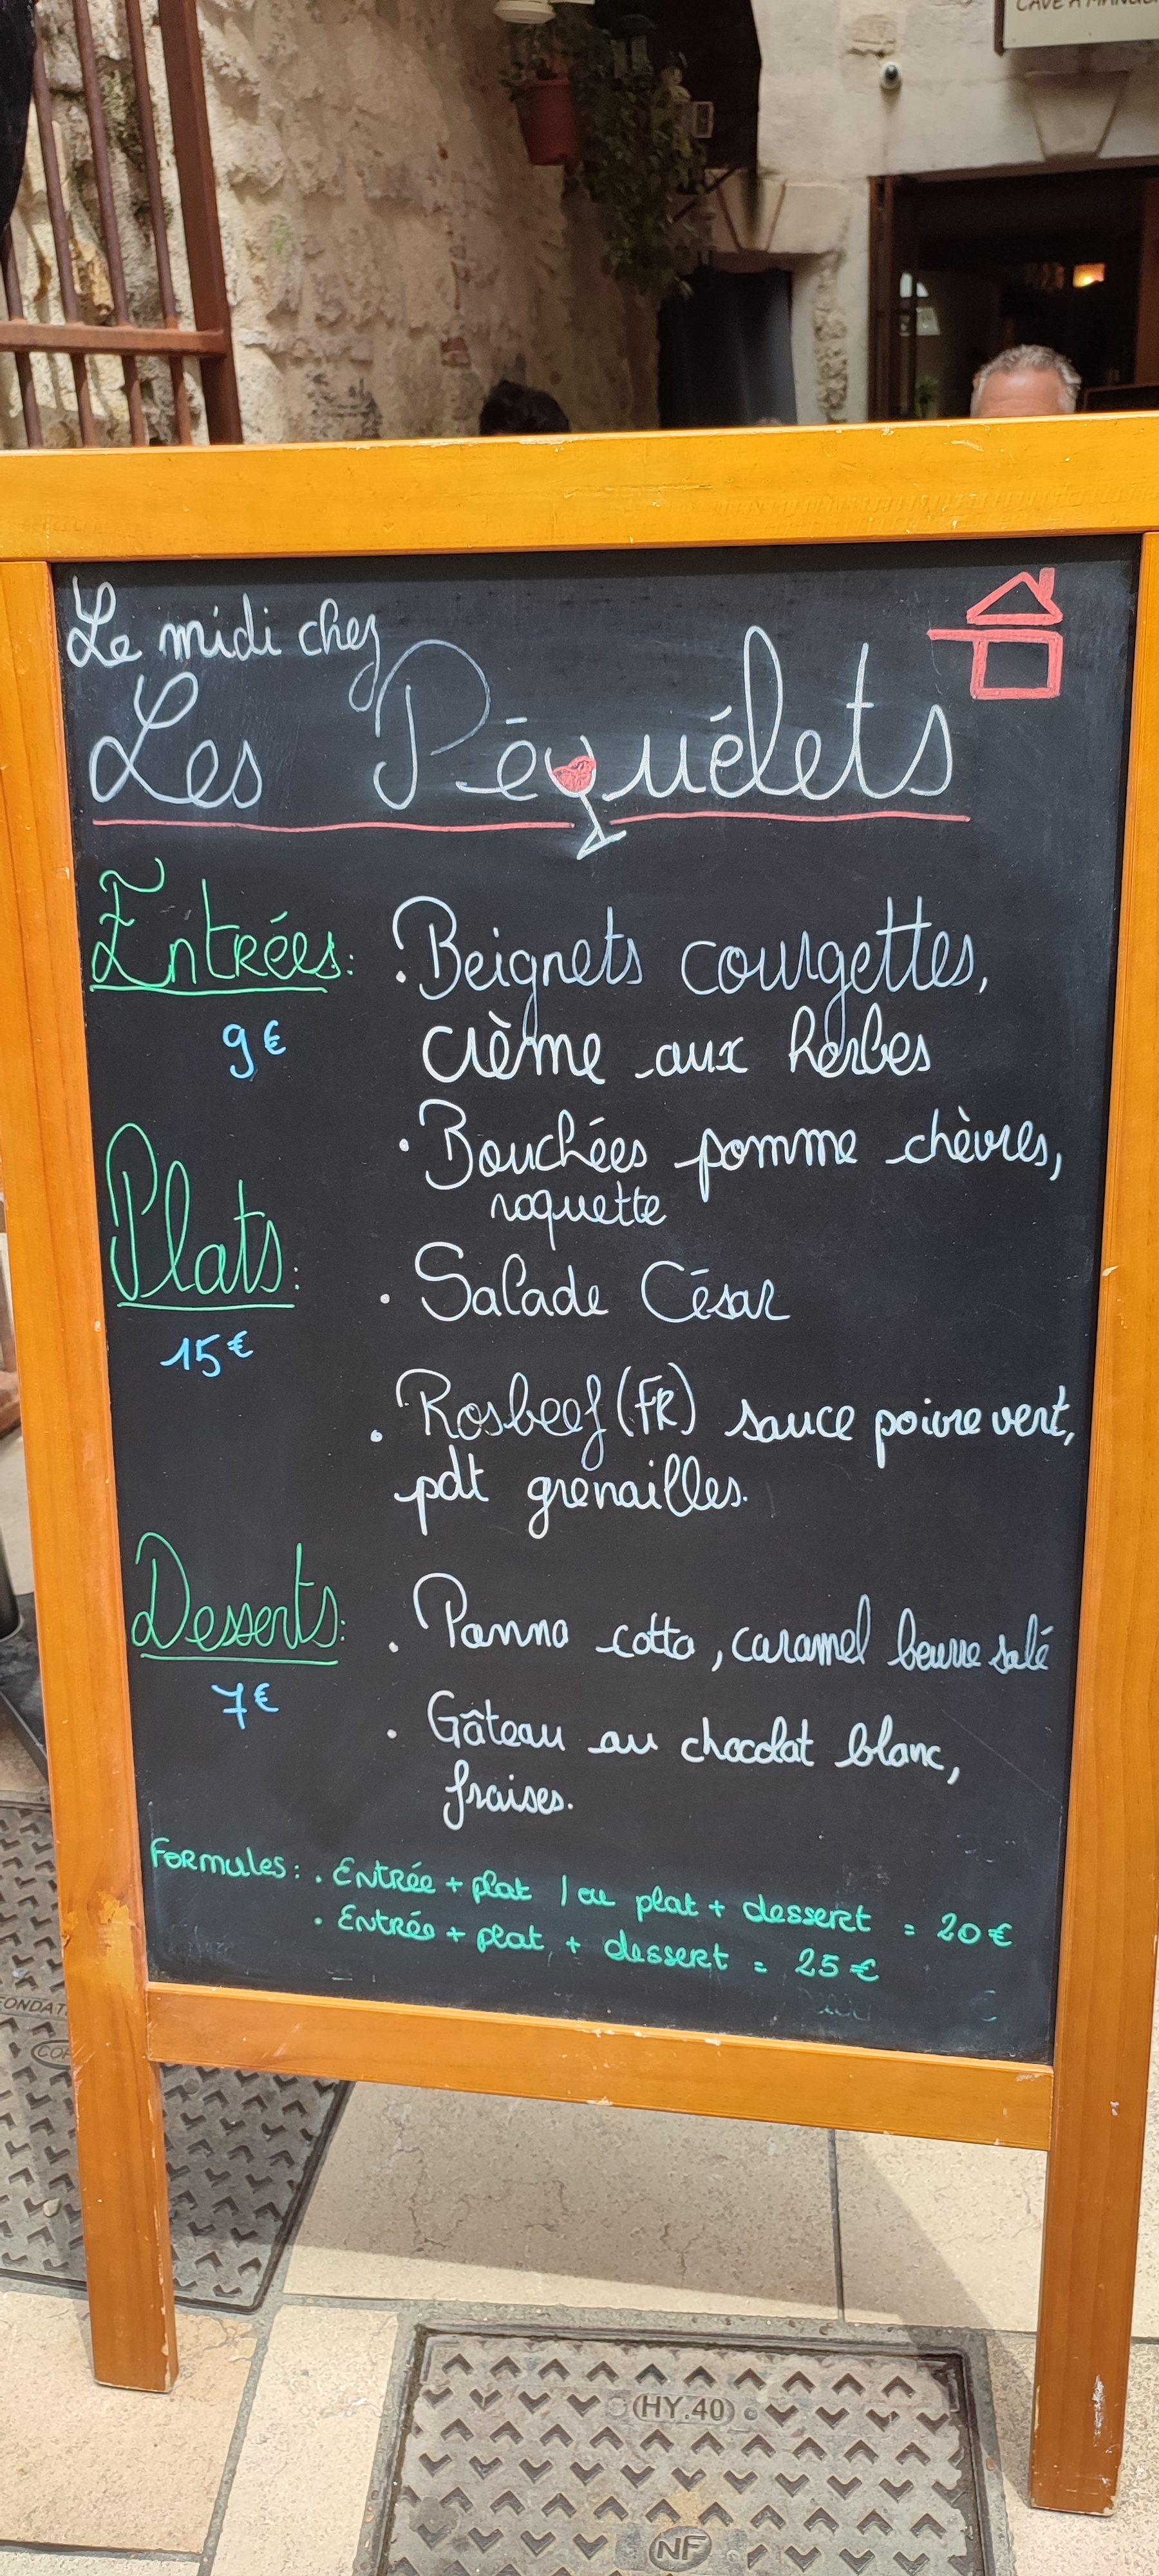 CAVE A MANGER
Le midi chez
Les Péquélets
Entrées:
9€
. Beignets courgettes,
crème aux herbes
. Bouchées pomme chèvres,
roquette
Plats:
15€
. Salade César
. Rosbeef (FR) sauce poivre vert,
pdt grenailles.
Desserts:
7€
. Panna cotta, caramel beurre salé
. Gâteau au chocolat blanc,
fraises.
Formules: . Entrée + plat / ou plat + dessert = 20€
. Entrée + plat + dessert = 25€
HY.40
NF